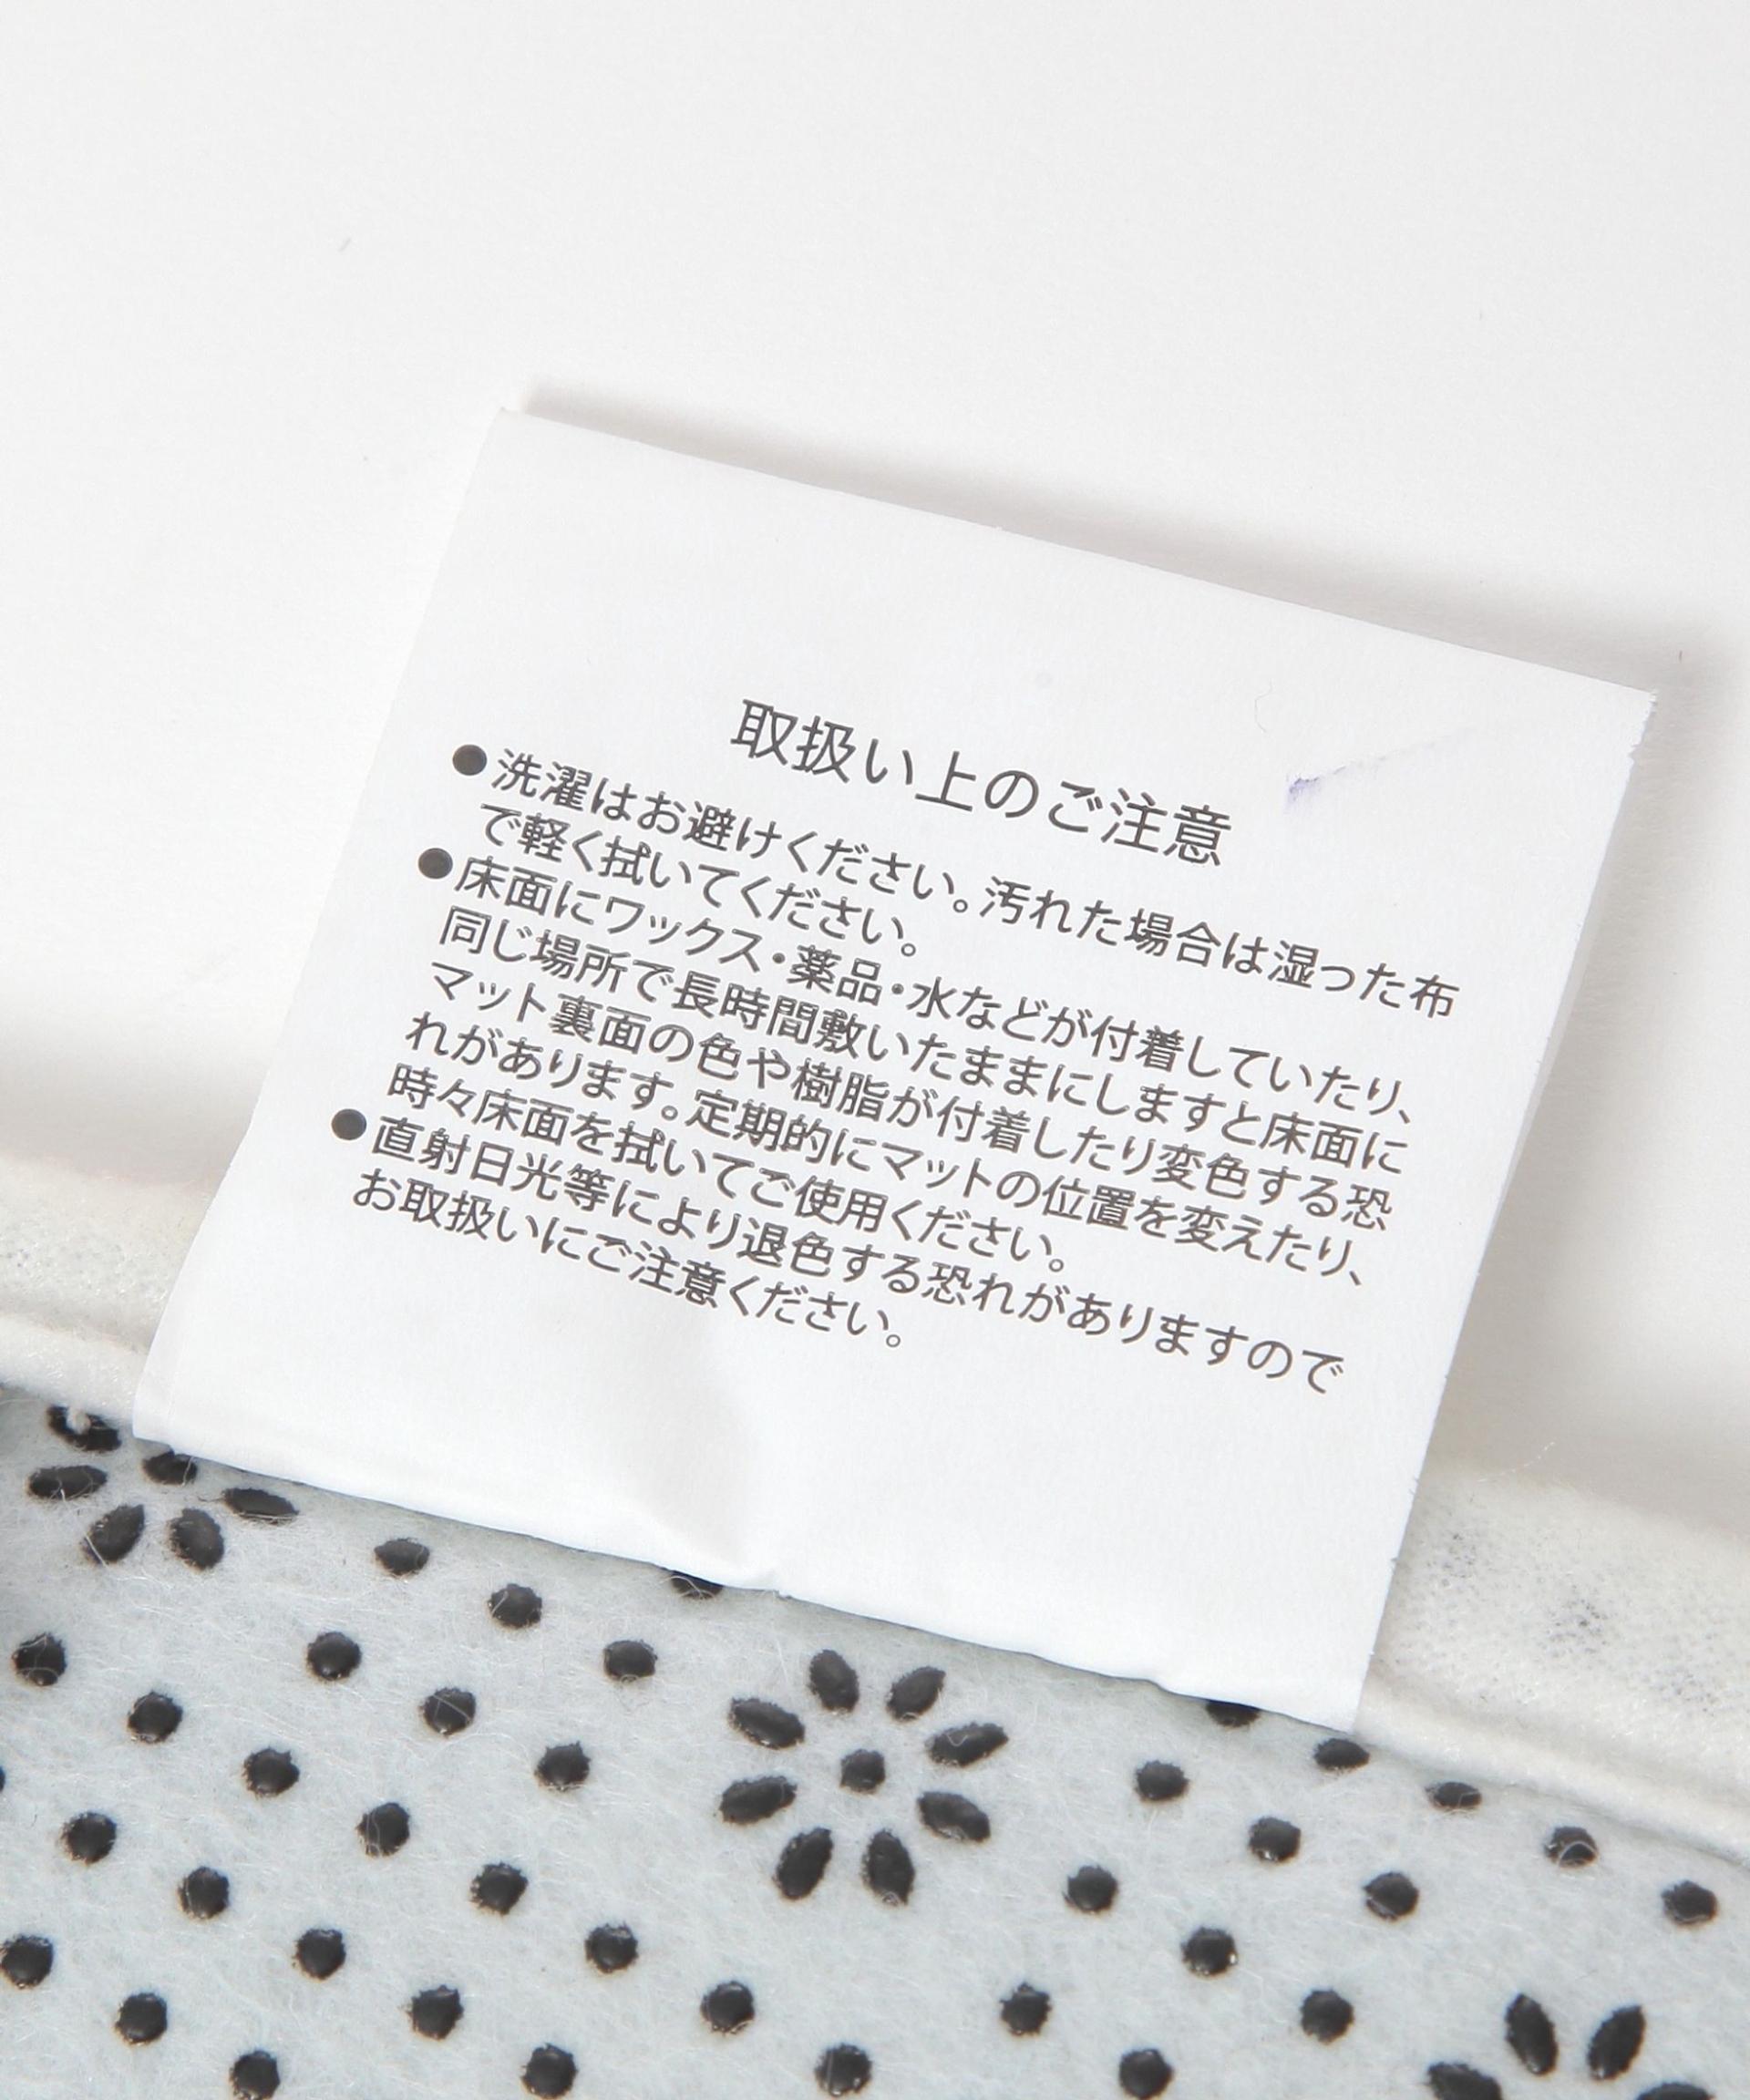 取扱い上のご注意
●洗濯はお避けください。汚れた場合は湿った布
で軽く拭いてください。
●床面にワックス・薬品・水などが付着していたり、
同じ場所で長時間敷いたままにしますと床面に
マット裏面の色や樹脂が付着したり変色する恐
れがあります。定期的にマットの位置を変えたり、
時々床面を拭いてご使用ください。
●直射日光等により退色する恐れがありますので
お取扱いにご注意ください。